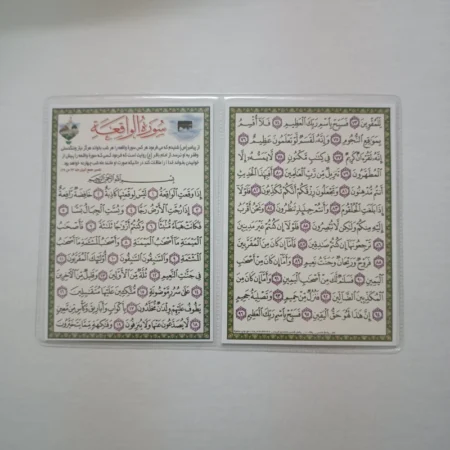 سُورَةُ الْوَاقِعَة
بِسْمِ اللَّهِ الرَّحْمَٰنِ الرَّحِيمِ
إِذَا وَقَعَتِ الْوَاقِعَةُ ١ لَيْسَ لِوَقْعَتِهَا كَاذِبَةٌ ٢ خَافِضَةٌ رَافِعَةٌ
٣ إِذَا رُجَّتِ الْأَرْضُ رَجًّا ٤ وَبُسَّتِ الْجِبَالُ بَسًّا ٥
فَكَانَتْ هَبَاءً مُنْبَثًّا ٦ وَكُنْتُمْ أَزْوَاجًا ثَلَاثَةً ٧ فَأَصْحَابُ
الْمَيْمَنَةِ مَا أَصْحَابُ الْمَيْمَنَةِ ٨ وَأَصْحَابُ الْمَشْئَمَةِ مَا أَصْحَابُ
الْمَشْئَمَةِ ٩ وَالسَّابِقُونَ السَّابِقُونَ ١٠ أُولَٰئِكَ الْمُقَرَّبُونَ ١١
فِي جَنَّاتِ النَّعِيمِ ١٢ ثُلَّةٌ مِنَ الْأَوَّلِينَ ١٣ وَقَلِيلٌ مِنَ الْآخِرِينَ
١٤ عَلَىٰ سُرُرٍ مَوْضُونَةٍ ١٥ مُتَّكِئِينَ عَلَيْهَا مُتَقَابِلِينَ ١٦
يَطُوفُ عَلَيْهِمْ وِلْدَانٌ مُخَلَّدُونَ ١٧ بِأَكْوَابٍ وَأَبَارِيقَ وَكَأْسٍ مِنْ مَعِينٍ
١٨ لَا يُصَدَّعُونَ عَنْهَا وَلَا يُنْزِفُونَ ١٩ وَفَاكِهَةٍ مِمَّا يَتَخَيَّرُونَ
لِلْمُقْوِينَ ٧٣ فَسَبِّحْ بِاسْمِ رَبِّكَ الْعَظِيمِ ٧٤ فَلَا أُقْسِمُ
بِمَوَاقِعِ النُّجُومِ ٧٥ وَإِنَّهُ لَقَسَمٌ لَوْ تَعْلَمُونَ عَظِيمٌ ٧٦
إِنَّهُ لَقُرْآنٌ كَرِيمٌ ٧٧ فِي كِتَابٍ مَكْنُونٍ ٧٨ لَا يَمَسُّهُ إِلَّا
الْمُطَهَّرُونَ ٧٩ تَنْزِيلٌ مِنْ رَبِّ الْعَالَمِينَ ٨٠ أَفَبِهَٰذَا الْحَدِيثِ
أَنْتُمْ مُدْهِنُونَ ٨١ وَتَجْعَلُونَ رِزْقَكُمْ أَنَّكُمْ تُكَذِّبُونَ ٨٢ فَلَوْلَا
إِذَا بَلَغَتِ الْحُلْقُومَ ٨٣ وَأَنْتُمْ حِينَئِذٍ تَنْظُرُونَ ٨٤ وَنَحْنُ أَقْرَبُ
إِلَيْهِ مِنْكُمْ وَلَٰكِنْ لَا تُبْصِرُونَ ٨٥ فَلَوْلَا إِنْ كُنْتُمْ غَيْرَ مَدِينِينَ
٨٦ تَرْجِعُونَهَا إِنْ كُنْتُمْ صَادِقِينَ ٨٧ فَأَمَّا إِنْ كَانَ مِنَ الْمُقَرَّبِينَ
٨٨ فَرَوْحٌ وَرَيْحَانٌ وَجَنَّتُ نَعِيمٍ ٨٩ وَأَمَّا إِنْ كَانَ مِنْ أَصْحَابِ
الْيَمِينِ ٩٠ فَسَلَامٌ لَكَ مِنْ أَصْحَابِ الْيَمِينِ ٩١ وَأَمَّا إِنْ كَانَ مِنَ
الْمُكَذِّبِينَ الضَّالِّينَ ٩٢ فَنُزُلٌ مِنْ حَمِيمٍ ٩٣ وَتَصْلِيَةُ جَحِيمٍ
٩٤ إِنَّ هَٰذَا لَهُوَ حَقُّ الْيَقِينِ ٩٥ فَسَبِّحْ بِاسْمِ رَبِّكَ الْعَظِيمِ ٩٦